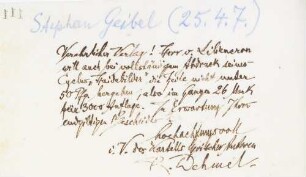 111
Stephan Geibel (25.4.7.)
Verehrlicher Verlag! Herr v. Liliencron
will auch bei vollständigem Abdruck seines
Cyclus "Haidebilder" die Zeile nicht unter
50 Pfg. hergeben, also im Ganzen 26 Mark
für 3000 Auflage. In Erwartung Ihres
endgiltigen Bescheides
hochachtungsvoll
i. V. des Kartells lyrischer Autoren
R. Dehmel.